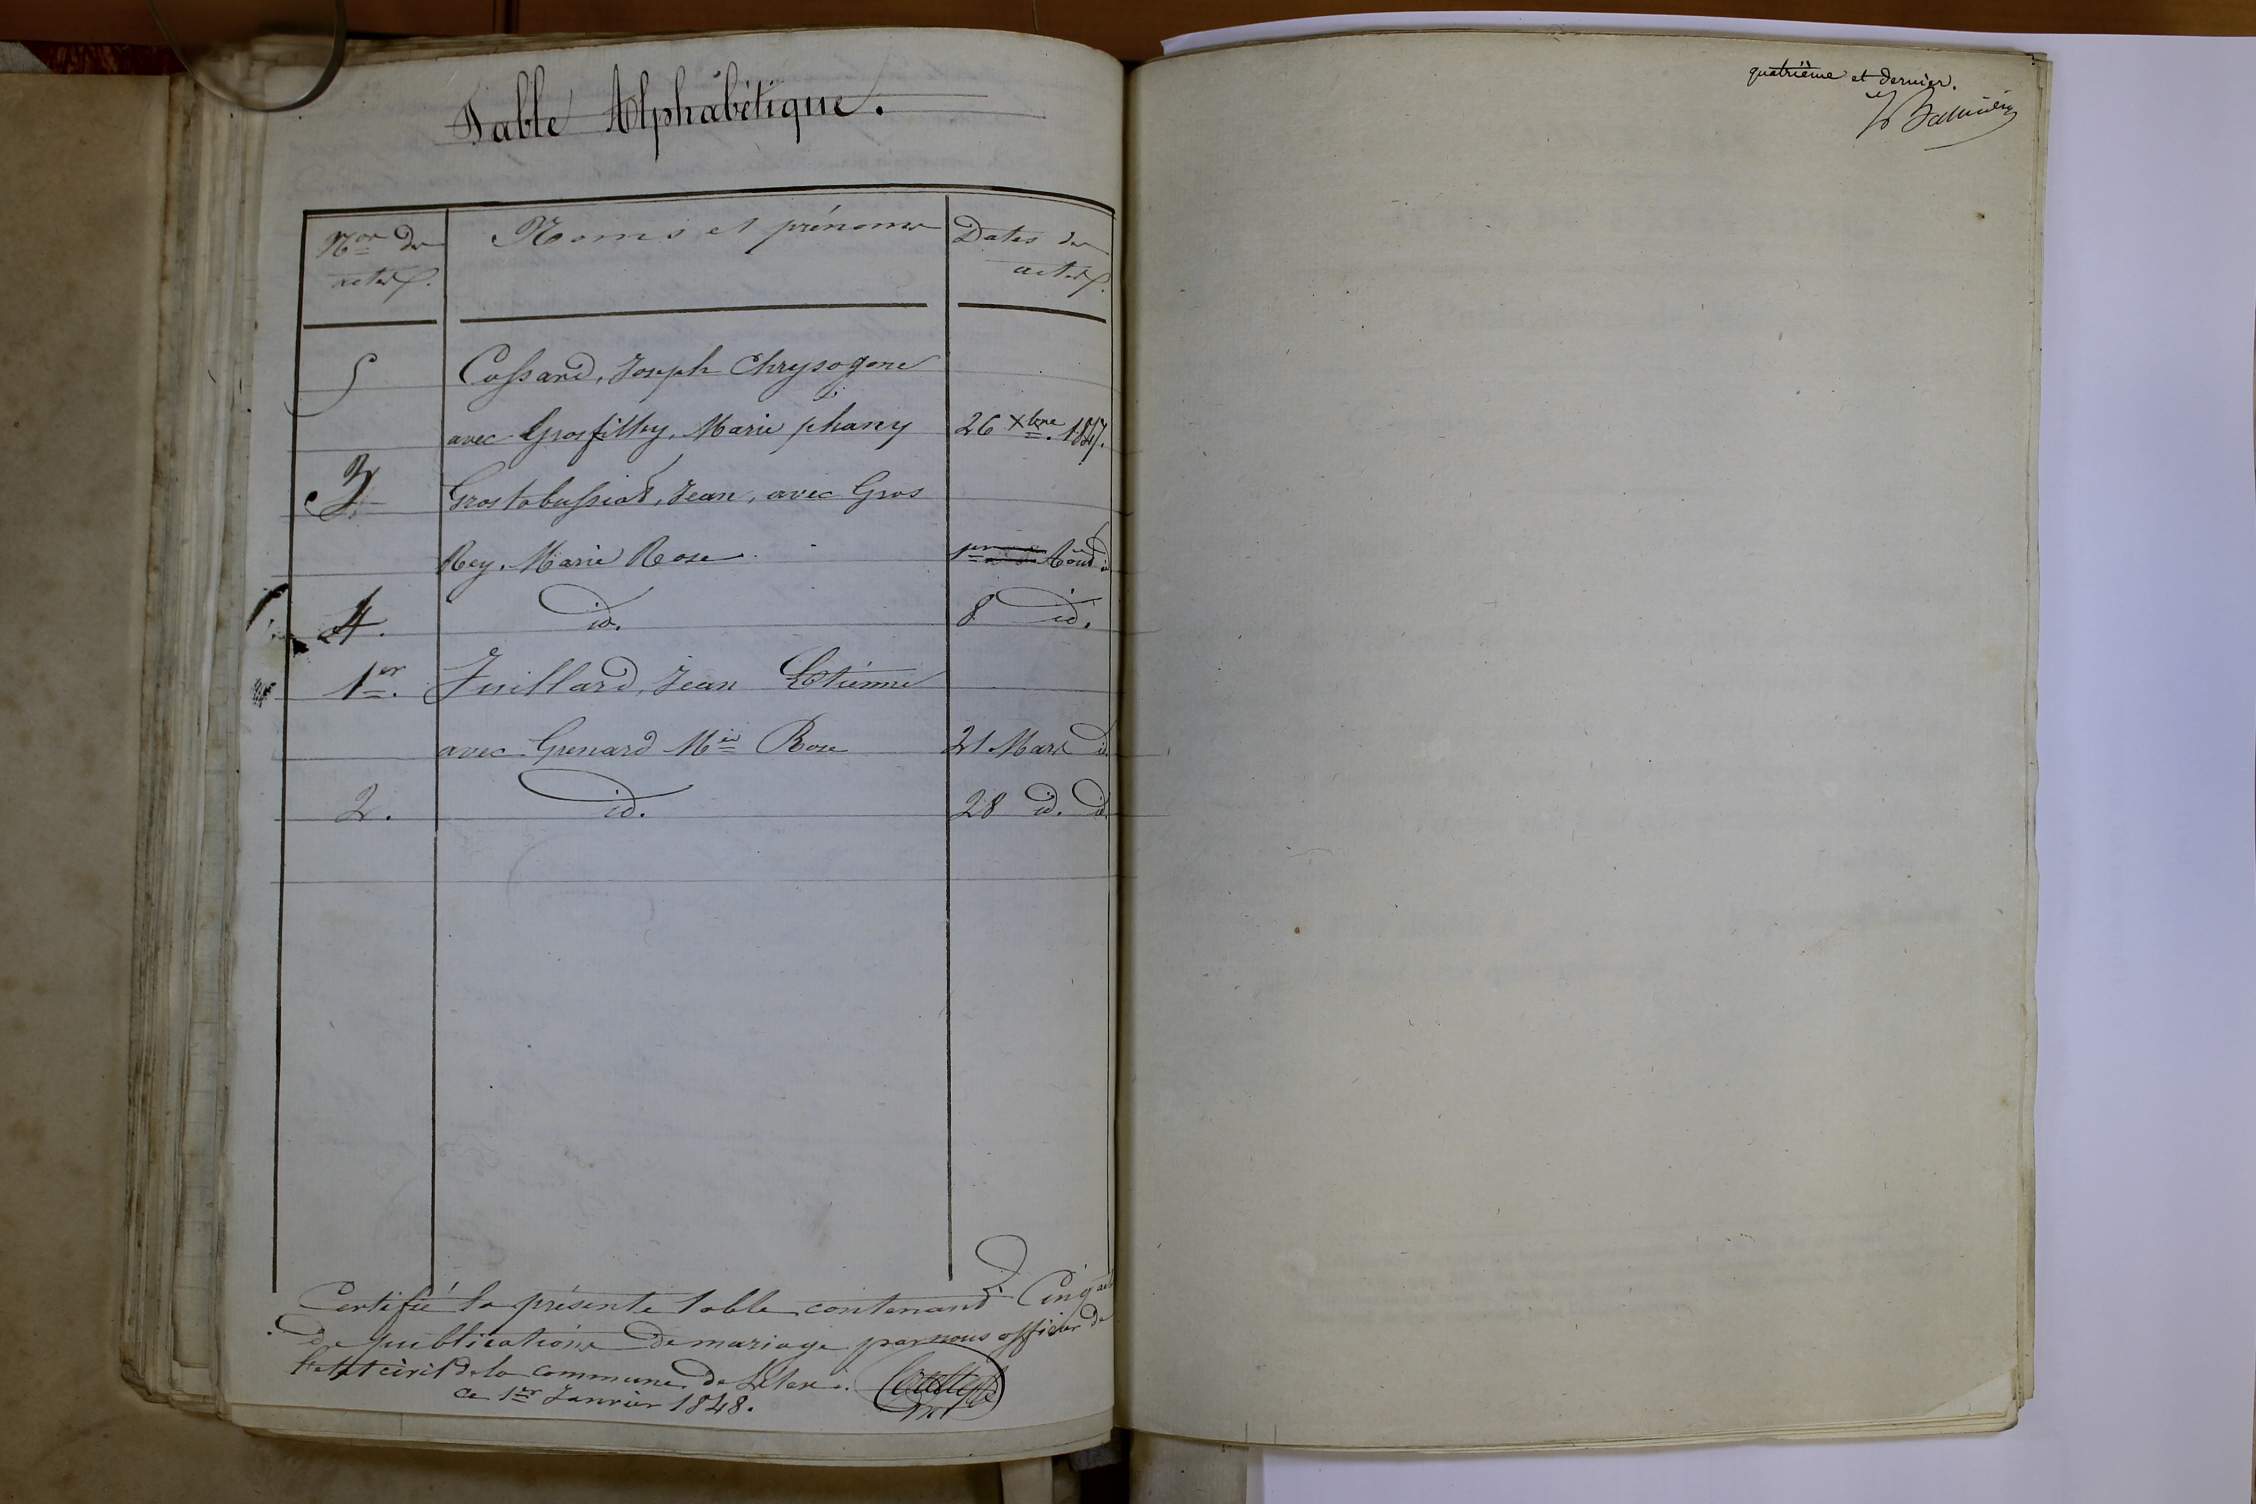 Table Alphabétique.
Nos des actes.
Noms et prénoms
Dates des actes.
5 Cossard, Joseph Chrysogone
avec Grosfilley, Marie phany 26 Xbre. 1847.
3 Grostabussiat, Jean, avec Gros
Rey, Marie Rose 1er Août id
4. id. 8 id.
1er. Juillard, Jean Etienne
avec Grenard Mie Rose 21 Mars id
2. id. 28 id. id.
Certifié la présente table contenant Cinq actes
de publications de mariage par nous officier de
l'état civil de la commune de
ce 1er Janvier 1848.
quatrième et dernier.